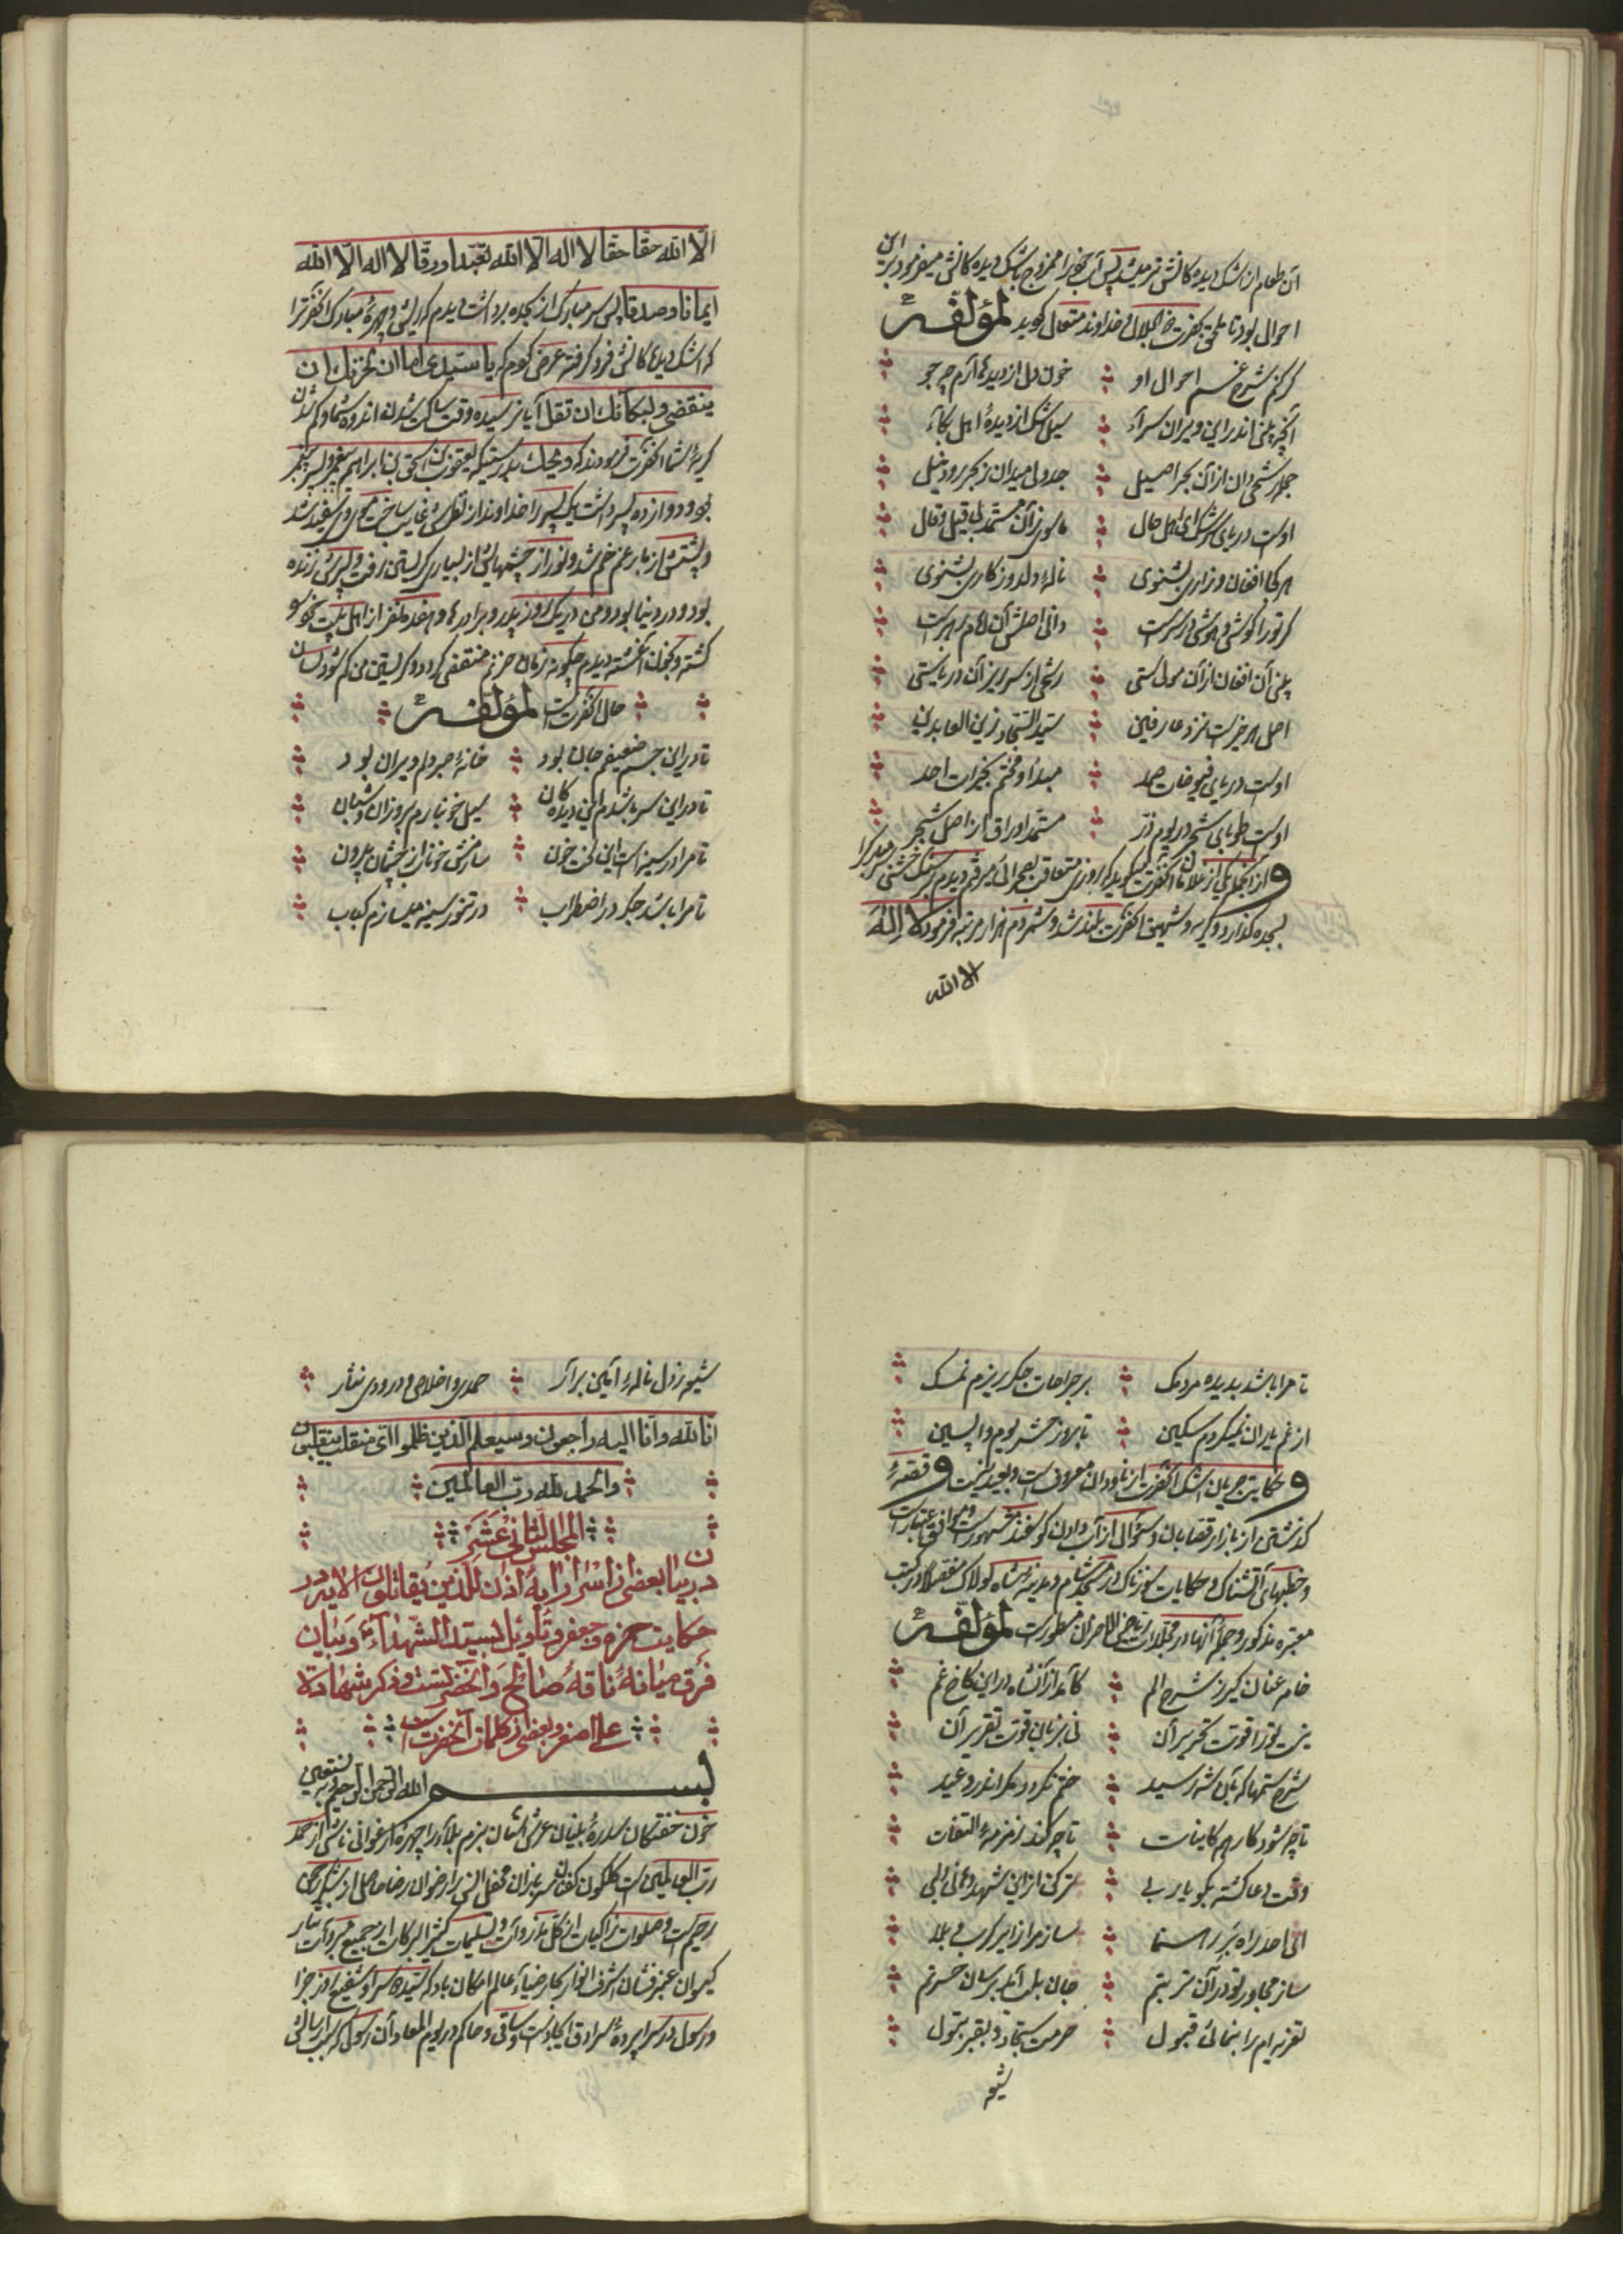 آن طعام از اشک دیده کانش تر میشد پس آب خوبرا ممزوج باشک دیده کانش میفرمود بر این
احوال بود تا ملحق بحضرت ذو الجلال خداوند متعال کردید لمؤلفه
کر کنم شرح غم احوال او خون دل از دیده ها آرم چه جو
آنچه بینی اندر این ویران سرآء سیل اشک از دیدۀ اهل بکآء
جمله رشحی دان از آن بحر اصیل جدولی میدان ز بحر رود نیل
اوست دریای سرشک ای اهل حال ماسوی زآن مستمد بی قیل و قال
هر کجا افغان و زاری بشنوی نالۀ دلدوز کاری بشنوی
کر تو را کوشی و هوشی در سرست دانی اصلش آن امام رهبرست
بینی آن افغان از آن مولاستی رشحی از سرریز آن دریاستی
اصل هر خیرست نزد عارفین سید السجاد زین العابدین
اوست دریای فیوضات صمد مبدأ و مختم بخیرات احد
اوست طوبای شجر در یوم ذر مستمد اوراق از اصل شجر
و از آنجمله یکی از غلامان آنحضرت میکوید که روزی متعاقب بصحرائی میرفتم دیدم بر سنک خشنی سر مبارک را
بسجده کذارد و کریه و شهیق آنحضرت بلند شد و شمردم هزار مرتبه فرمود لا اله
الا الله
الّا الله حقّا حقّا لا اله الّا الله تعبّدا و رقّا لا اله الّا الله
ایمانا و صدقا پس سر مبارک از سجده برداشت دیدم که ریش و چهرۀ مبارک آنحضرترا
که اشک دیدهای کانش فرو کرفته عرض کردم که یا سیدی اما ان لحزنک ان
ینقضی و لبکائک ان تقل آیا نرسیده وقت ساکت شدن اندوه شما و کم شدن
کریۀ شما آنحضرت فرمودند که ویحک بدرستیکه یعقوب بن اسحق بن ابراهیم پیغمبر و پسر پیغمبر
بود و دوازده پسر داشت یک پسر را خداوند از نظرش غایب ساخت موی سرش سفید شد
و پشتش از بار غم خم شد و نور از چشمهایش از بسیاری کریستن رفت و پسرش زنده
بود و در دنیا بود و من در یک روز پدر و برادرها و هفده نفر از اهل بیت خود
کشته و بخون آغشته دیدم چکونه زمان حزنم منقضی کردد و کریستن من کم شود لسان
حال آنحضرت است لمؤلفه
تا در این جسم ضعیفم جان بود خانۀ صبر دلم ویران بود
تا در این سر باشدم این دیده کان سیل خون بارم بروزان و شبان
تا مرا در سینه است این لخت خون سازمش خونانه از چشمان برون
تا مرا باشد جکر در اضطراب در تنور سینه میسازم کباب
تا مرا باشد بدیده مردمک بر جراحات جکر ریزم نمک
از غم یاران نمیکردم سکین تا بروز حشر یوم واپسین
و حکایت جریان اشک آنحضرت از ناودان معروف است و بعید نیست و قصۀ
کذشتن از بازار قصابان و سئوال از آب دادن کوسفند مشهورست و موافق اعتبارست
و خطبهای آتشناک و حکایات سوزناک در مسجد شام و مدینۀ شاه لولاک مفصلا در کتب
معتبره مذکور و جملۀ آنها در مجلدات ریاض الاحزان مسطورست لمؤلفه
خامه عنان کیر ز شرح الم کامد از آنشاه در این کاخ غم
نیست تو را قوت تحریر آن نی بزبان قوت تقریر آن
شرح ستمها که بآن شه رسید ختم نکردد مکر اندر وعید
تا چه شود کار همه کاینات تا چه کند زمزمۀ التفات
وقت دعا کشته بکو یا ربی ترک کن از این شهد دهانی لبی
ای احد راه بَر رهنما ساز مرا زایر کرب و بلا
ساز مجاور تو در آن تربتم جان بلب آمد برسان حسرتم
تعزیه ام را بنمائی قبول حرمت سجاد و بقبر بتول
شیو
شیو ز دل نالۀ آیین برآر حمدی و اخلاص و درودی نثار
انا لله و انا الیه راجعون و سیعلم الذین ظلموا ای منقلب ینقلبون
و الحمد لله رب العالمین
المجلس الثانی عشر
در بیان بعضی از اسرار آیۀ اذن للذین یقاتلون الآیه و در
حکایت حمزه و جعفر و تأویل بسید الشهدآء و بیان
فرق میانۀ ناقۀ صالح و آنحضرتست و ذکر شهادة
علی اصغر و بعضی از کلمات آنحضرت است
بسم الله الرحمن الرحیم و به نستعین
خون خفتکان سدرۀ بنیان عرش آشیان بزم بلآء را چهرۀ ارغوانی ناشی از حمد
رب العالمین است کلکون کفنان سربازان محفل انس را رضوان رضا حاصل از شکر رحمن
رحیم است و صلوات زاکیات از کل ذروآت و تسلیمات کثیر البرکات از جمیع مبروآت نثار
کیسوان عنبرفشان اشرف انوار کبار ضیاء عالم امکان باد که سید دو سرا و شفیع روز جزا
و رسول در سراپردۀ سرادق ایجادست و ساقی و حاکم در یوم المعاد آن رسول که سبب ارسالش